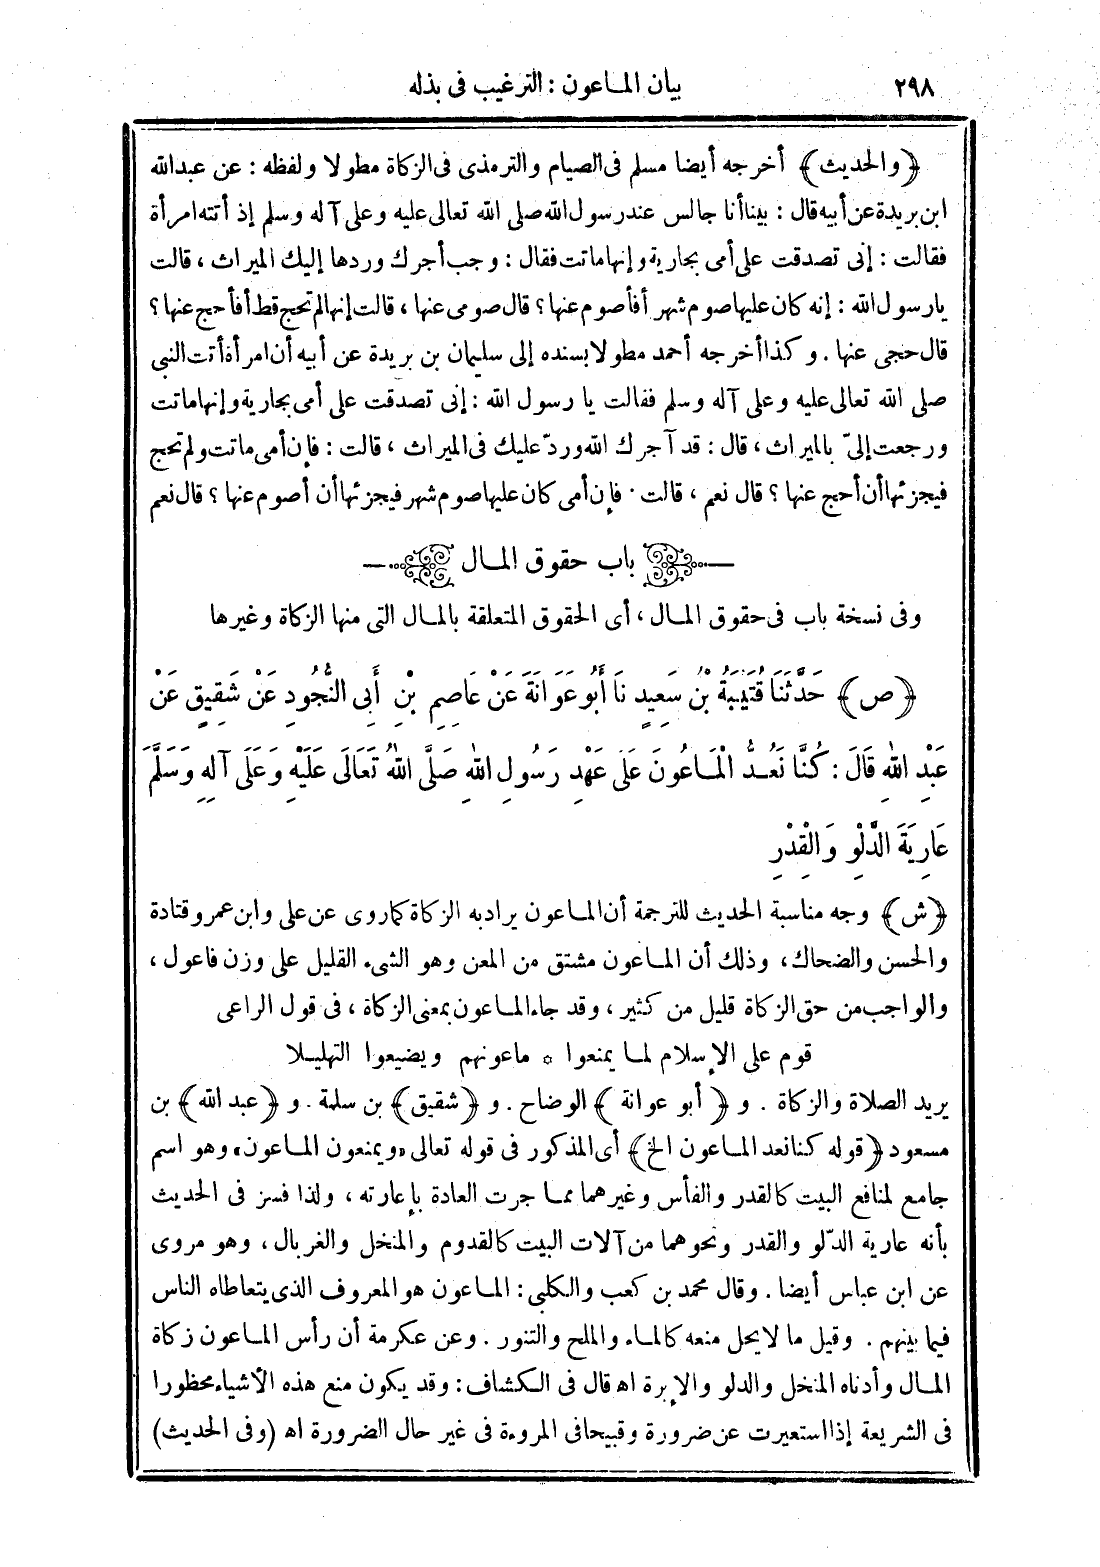 ٢٩٨
بيان المـاعون : الترغيب فى بذله
﴿والحديث﴾ أخرجه أيضا مسلم فى الصيام والترمذى فى الزكاة مطولا ولفظه : عن عبدالله
ابن بريدة عن أبيه قال : بينا أنا جالس عند رسول الله صلى الله تعالى عليه وعلى آله وسلم إذ أتته امرأة
فقالت : إنى تصدقت على أمى بجارية وإنها ماتت فقال : وجب أجرك وردها إليك الميراث ، قالت
يا رسول الله : إنه كان عليها صوم شهر أفأصوم عنها ؟ قال صومى عنها ، قالت إنها لم تحج قط أفأحج عنها ؟
قال حجى عنها . وكذا أخرجه أحمد مطولا بسنده إلى سليمان بن بريدة عن أبيه أن امرأة أتت النبى
صلى الله تعالى عليه وعلى آله وسلم فقالت يا رسول الله : إنى تصدقت على أمى بجارية وإنها ماتت
ورجعت إلىّ بالميراث ، قال : قد آجرك الله وردّ عليك فى الميراث ، قالت : فإن أمى ماتت ولم تحج
فيجزئها أن أحج عنها ؟ قال نعم ، قالت . فإن أمى كان عليها صوم شهر فيجزئها أن أصوم عنها ؟ قال نعم
باب حقوق المـال
وفى نسخة باب فى حقوق المـال ، أى الحقوق المتعلقة بالمـال التى منها الزكاة وغيرها
﴿ص﴾ حَدَّثَنَا قُتَيْبَةُ بْنُ سَعِيدٍ نَا أَبُو عَوَانَةَ عَنْ عَاصِمِ بْنِ أَبِى النُّجُودِ عَنْ شَقِيقٍ عَنْ
عَبْدِ اللهِ قَالَ : كُنَّا نَعُـدُّ الْمَـاعُونَ عَلَى عَهْدِ رَسُولِ اللهِ صَلَّى اللهُ تَعَالَى عَلَيْهِ وَعَلَى آلِهِ وَسَلَّمَ
عَارِيَةَ الدَّلْوِ وَالْقِدْرِ
﴿ش﴾ وجه مناسبة الحديث للترجمة أن المـاعون يراد به الزكاة كما روى عن على وابن عمر وقتادة
والحسن والضحاك ، وذلك أن المـاعون مشتق من المعن وهو الشىء القليل على وزن فاعول ،
والواجب من حق الزكاة قليل من كثير ، وقد جاء المـاعون بمعنى الزكاة ، فى قول الراعى
قوم على الإسلام لمـا يمنعوا * ماعونهم ويضيعوا التهليـلا
يريد الصلاة والزكاة . و ﴿أبو عوانة﴾ الوضاح . و ﴿شقيق﴾ بن سلمة . و ﴿عبد الله﴾ بن
مسعود ﴿قوله كنا نعد المـاعون الخ﴾ أى المذكور فى قوله تعالى «ويمنعون المـاعون» وهو اسم
جامع لمنافع البيت كالقدر والفأس وغيرهما ممـا جرت العادة بإعارته ، ولذا فسر فى الحديث
بأنه عارية الدّلو والقدر ونحوهما من آلات البيت كالقدوم والمنخل والغربال ، وهو مروى
عن ابن عباس أيضا . وقال محمد بن كعب والكلبى : المـاعون هو المعروف الذى يتعاطاه الناس
فيما بينهم . وقيل ما لا يحل منعه كالمـاء والملح والتنور . وعن عكرمة أن رأس المـاعون زكاة
المـال وأدناه المنخل والدلو والإبرة اه قال فى الكشاف : وقد يكون منع هذه الأشياء محظورا
فى الشريعة إذا استعيرت عن ضرورة وقبيحا فى المروءة فى غير حال الضرورة اه (وفى الحديث)